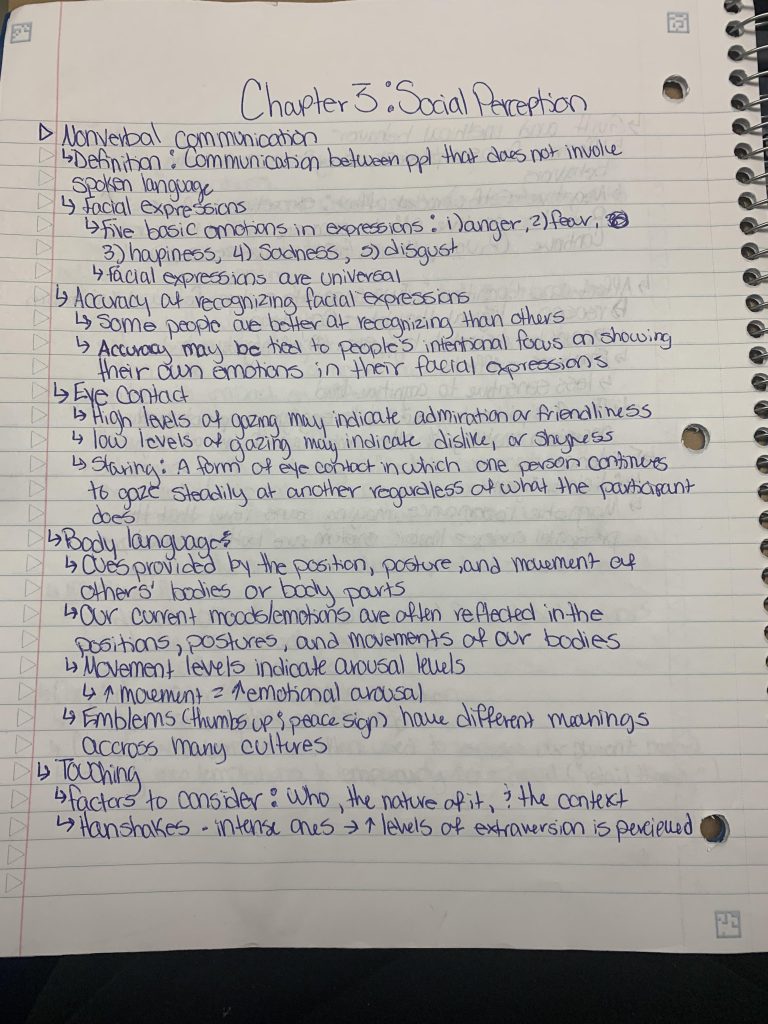 Chapter 3: Social Perception
Nonverbal communication
↳Definition: Communication between ppl that does not involve
spoken language
↳ facial expressions
↳ Five basic emotions in expressions: 1) anger, 2) fear,
3) hapiness, 4) Sadness, 5) disgust
↳ facial expressions are universal
↳ Accuracy at recognizing facial expressions
↳ Some people are better at recognizing than others
↳ Accuracy may be tied to people's intentional focus on showing
their own emotions in their facial expressions
↳ Eye Contact
↳ High levels of gazing may indicate admiration or friendliness
↳ low levels of gazing may indicate dislike, or shyness
↳ Staring: A form of eye contact in which one person continues
to gaze steadily at another regardless of what the participant
does
↳ Body language:
↳ Cues provided by the position, posture, and movement of
others' bodies or body parts
↳ Our current moods/emotions are often reflected in the
positions, postures, and movements of our bodies
↳ Movement levels indicate arousal levels
↳ ↑ movement = ↑ emotional arousal
↳ Emblems (thumbs up & peace sign) have different meanings
accross many cultures
↳ Touching
↳ factors to consider: Who, the nature of it, & the context
↳ Hanshakes - intense ones → ↑ levels of extraversion is percieved